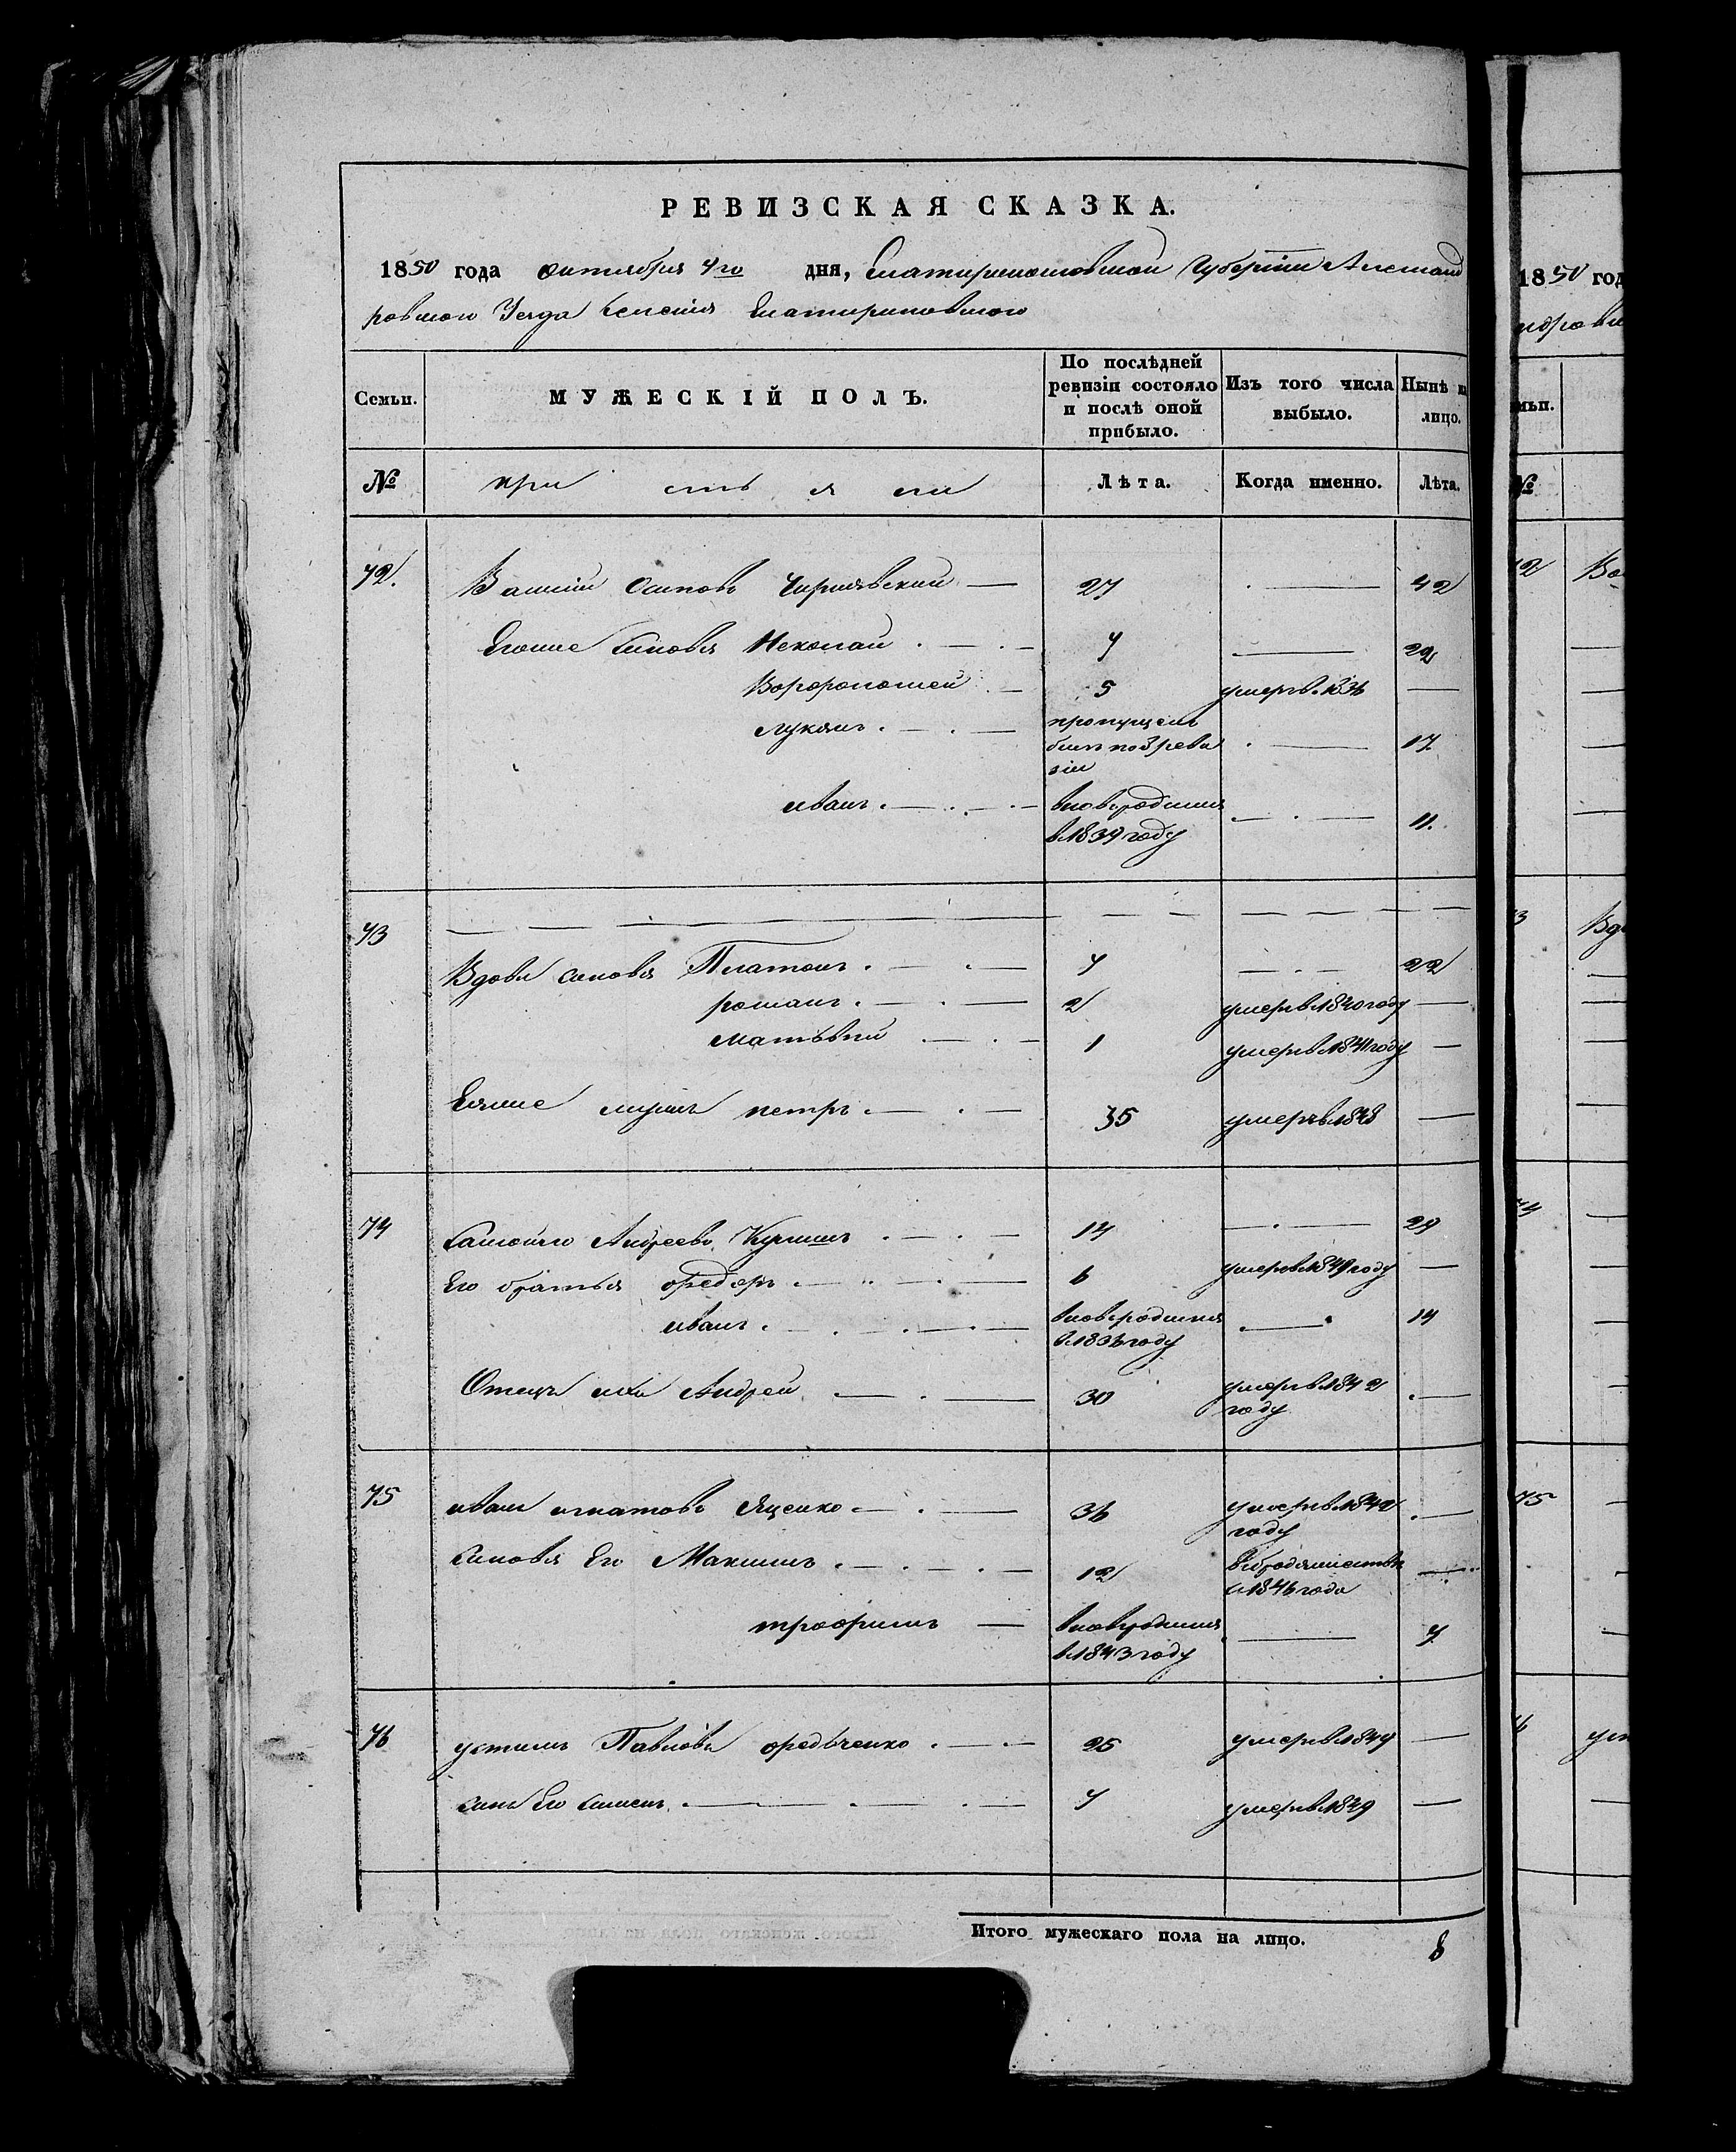 РЕВИЗСКАЯ СКАЗКА.
1850 года октября 4го дня, Екатиринославской Губернии Александ
ровского Уезда Селения Екатириновкого
Семьи.
МУЖЕСКІЙ ПОЛЪ.
По послѣдней
ревизіи состояло
и послѣ оной
прибыло.
Изъ того числа
выбыло.
Нынѣ н
лицо.
№
кри сть я ни
Лѣта.
Когда именно.
Лѣта.
72. Василий Осиповъ Чирнявский — 27 — 42
Егоже синовя Неколай 7 — 22
5 умеръ в 1836 —
Лукянъ пропущенъ
былъ по 8 реви
зіи
— 17
иванъ вновьродился
в 1839 году
— 11.
73
Вдови синовя Платонъ 7 — 22
романъ 2 умеръ в 1840 году —
матьвпй 1 умеръ в 1841 году —
Еяже мужъ петръ 35 умеръ в 1848 —
74 Самойло Андреевъ 14 — 29
Его братья федоръ 6 умеръ в 1849 году —
иванъ вновьродился
в 1836 году
— 14
Отецъ ихъ Андрей 30 умеръ в 1842
году
75 иванъ игнатовъ Яценко 36 умеръ в 1842
году
Синовя Его Максимъ 12 в бродяжистве
с 1846 года
трофимъ — вновьродился
в 1843 году
— 7
76 устимъ Павловъ федьченко 25 умеръ в 1849 —
синъ Его Сименъ 7 умеръ в 1849 —
Итого мужескаго пола на лицо. 8
1850 год
ндровс
мьи.
№
72 Ва
73 Вд
74
75
6 уст